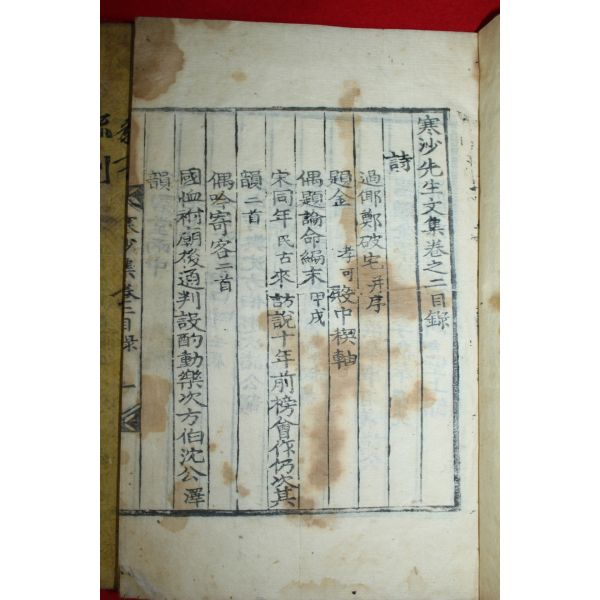 寒沙先生文集卷之二目錄
詩
過鄭破宅 并序
題金 孝可 殿中稧軸
偶題論命編末 甲戌
宋同年 民古 來訪說十年前榜會作仍次其
韻 二首
偶吟寄客 二首
國恤祔廟後通判設酌動樂次方伯沈公澤
韻
寒沙集卷二目錄 一